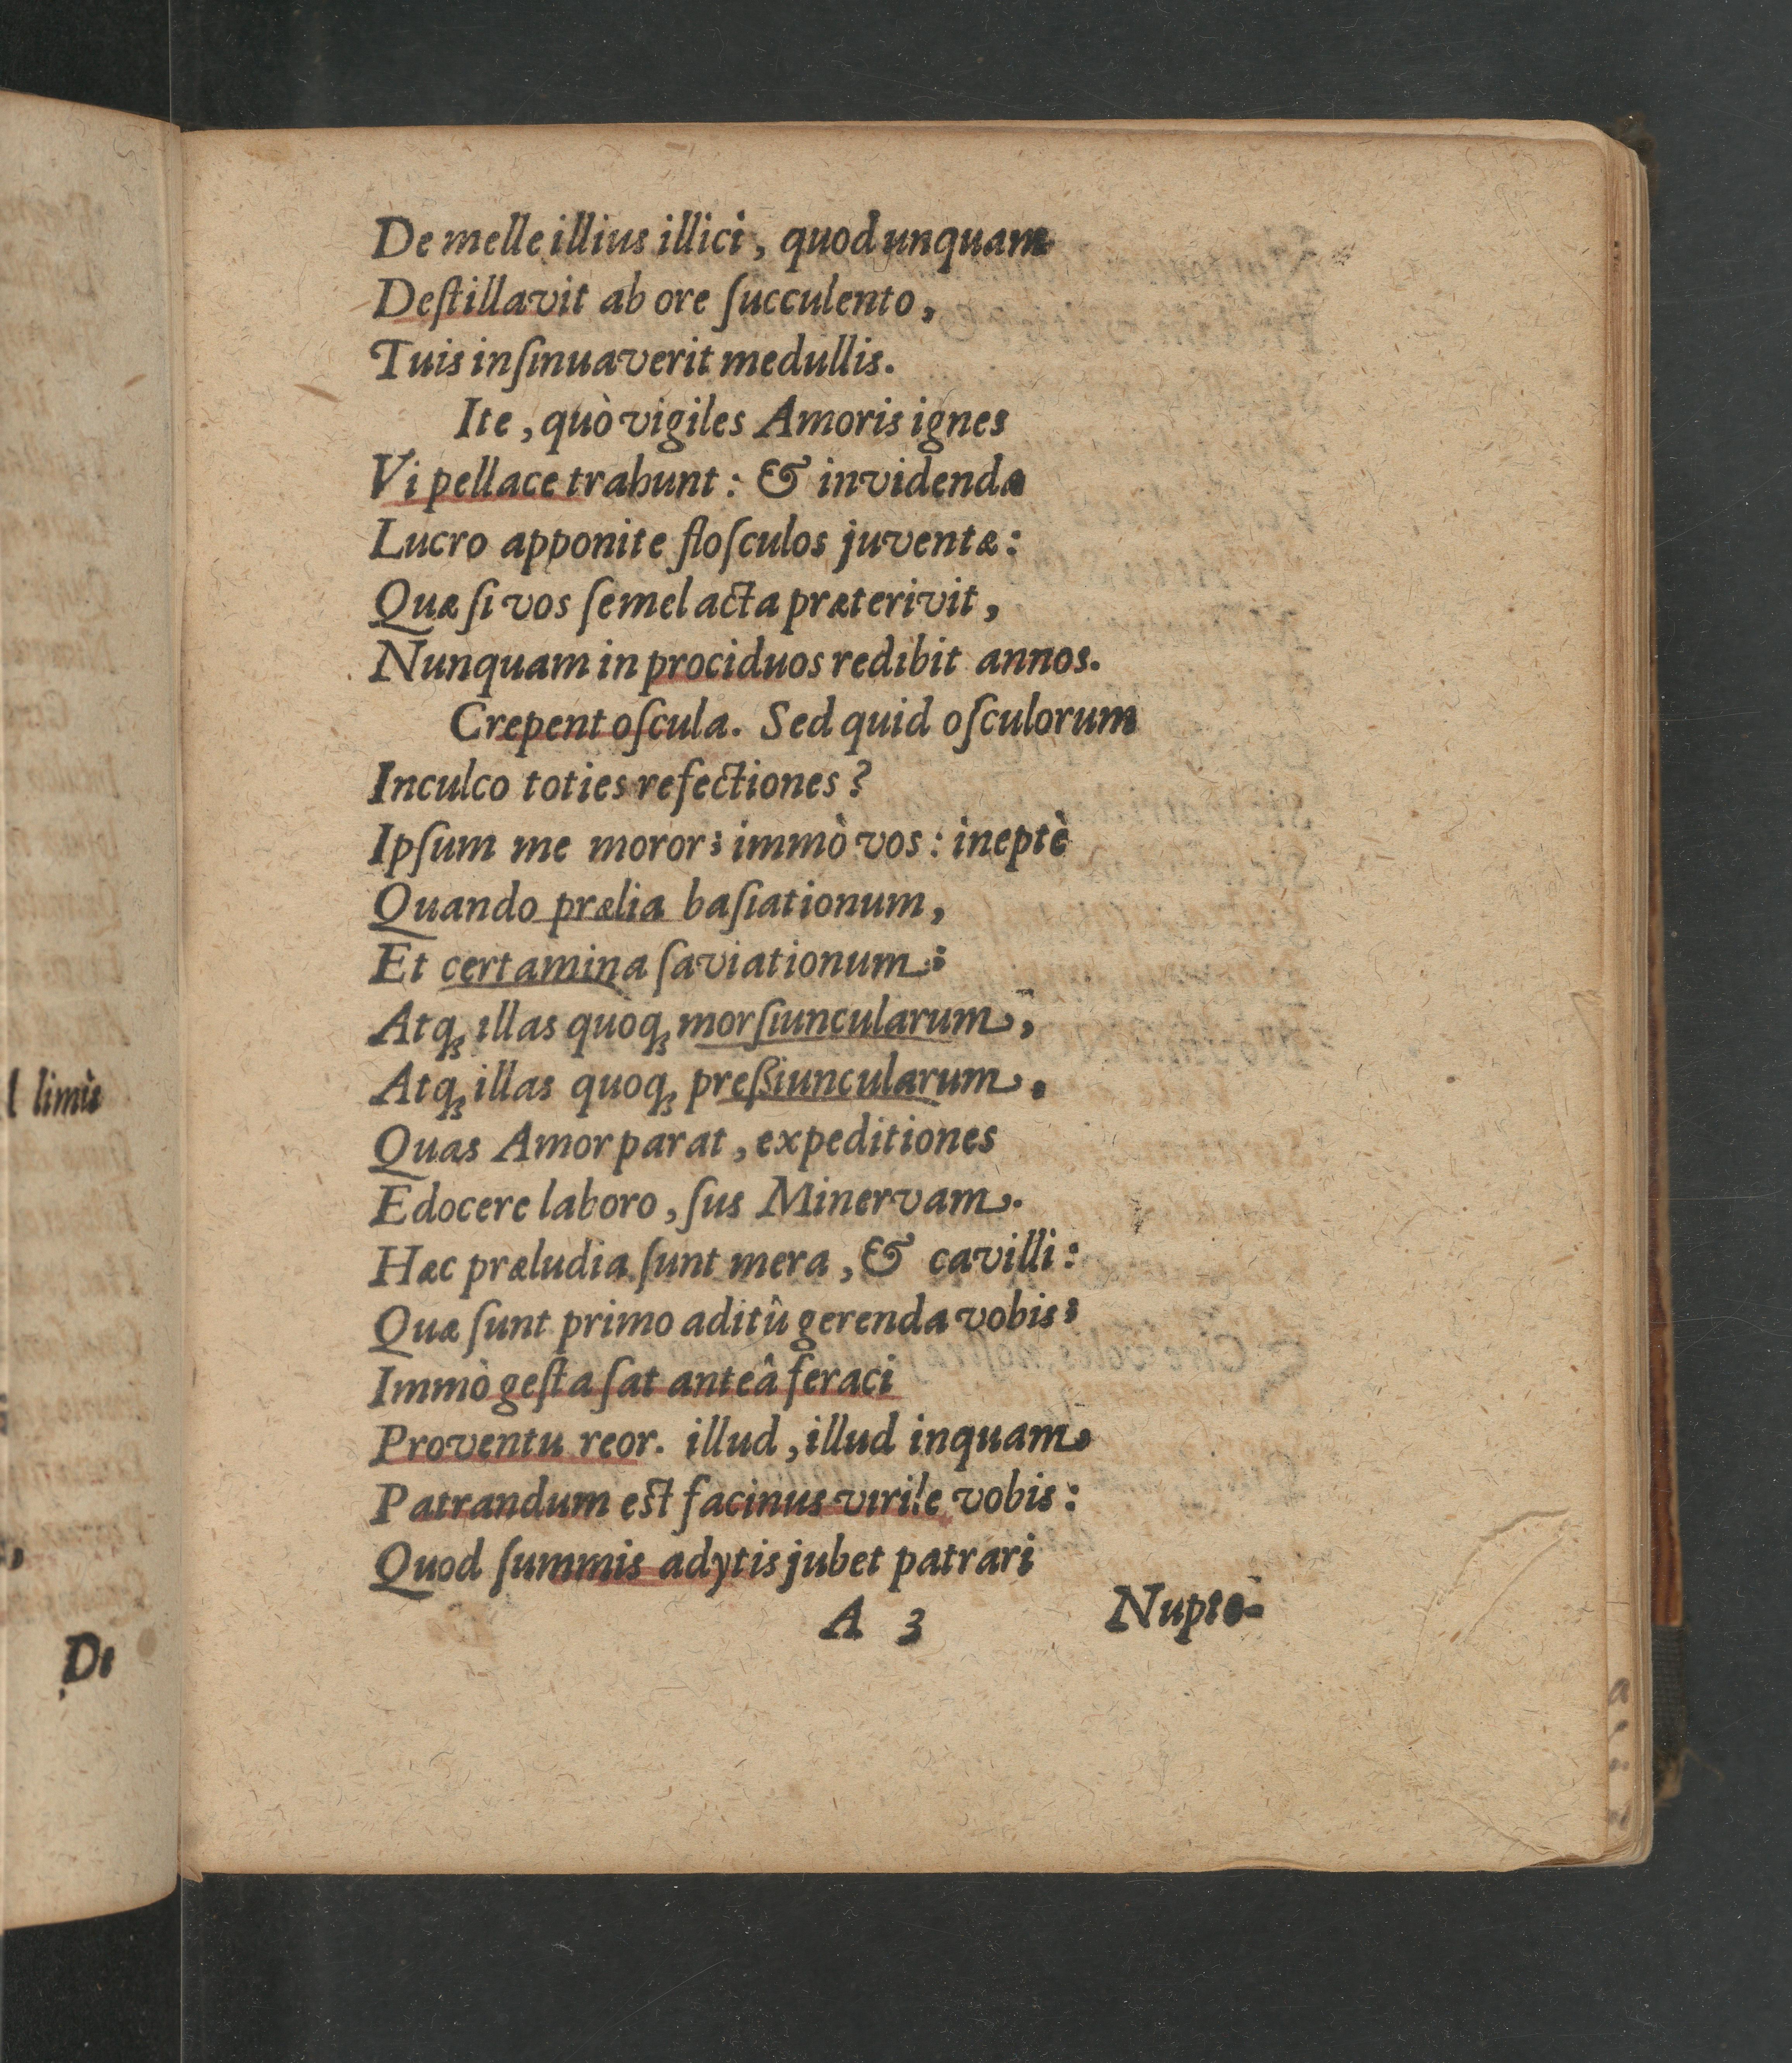 De melle illius illici, quod unquam
Deſtillavit ab ore ſucculento,
Tuis inſinuaverit medullis.
Ite, quò vigiles Amoris ignes
Vi pellace trahunt: & invidendæ
Lucro apponite floſculos juventæ:
Quæ ſi vos ſemel acta præterivit,
Nunquam in prociduos redibit annos.
Crepent oſcula. Sed quid oſculorum
Inculco toties refectiones?
Ipſum me moror; immò vos: ineptè
Quando prælia baſiationum,
Et certamina ſaviationum;
Atq́ꝫ illas quoq́ꝫ morſiuncularum,
Atq́ꝫ illas quoq́ꝫ preßiuncularum.
Quas Amor parat, expeditiones
Edocere laboro, ſus Minervam.
Hæc præludia ſunt mera, & cavilli:
Quæ ſunt primo aditû gerenda vobis;
Immò geſta ſat anteâ feraci
Proventu reor. illud, illud inquam
Patrandum eſt facinus virile vobis:
Quod ſummis adytis jubet patrari
A 3
Nupto-
limis
De